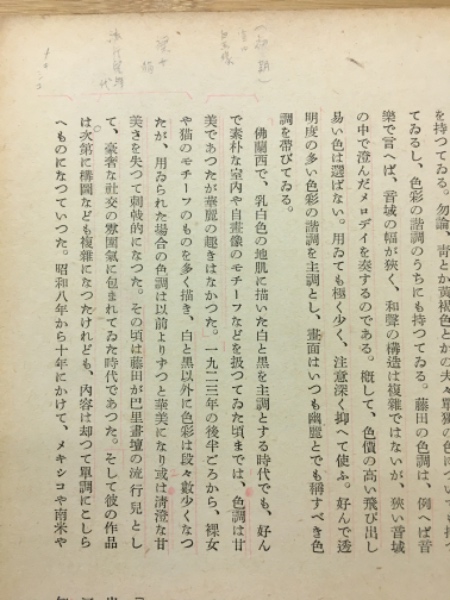 を持つてゐる。勿論、靑とか黃褐色とかの夫々單獨の色に
てゐるし、色彩の諧調のうちにも持つてゐる。藤田の色調は、例へば音
樂で言へば、音域の幅が狹く、和聲の構造は複雜ではないが、狹い音域
の中で澄んだメロデイを奏するのである。槪して、色價の高い飛び出し
易い色は選ばない。用ゐても極く少く、注意深く抑へて使ふ。好んで透
明度の多い色彩の諧調を主調とし、畫面はいつも幽艷とでも稱すべき色
調を帶びてゐる。
佛蘭西で、乳白色の地肌に描いた白と黑を主調とする時代でも、好ん
で素朴な室內や自畫像のモチーフなどを扱つてゐた頃までは、色調は甘
美であつたが華麗の趣きはなかつた。一九二三年の後半ごろから、裸女
や猫のモチーフのものを多く描き、白と黑以外に色彩は段々數少くなつ
たが、用ゐられた場合の色調は以前よりずつと華美になり或は淸澄な甘
美さを失つて刺戟的になつた。その頃は藤田が巴里畫壇の流行兒とし
て、豪奢な社交の雰圍氣に包まれてゐた時代であつた。そして彼の作品
は次第に構圖なども複雜になつたけれども、內容は却つて單調にこしら
へものになつていつた。昭和八年から十年にかけて、メキシコや南米や